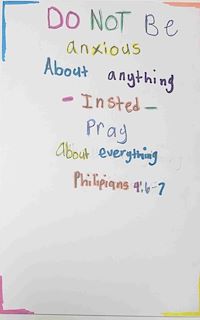 DO NOT Be
anxious
About anything
- Insted -
Pray
About everything
Philipians 4:6-7